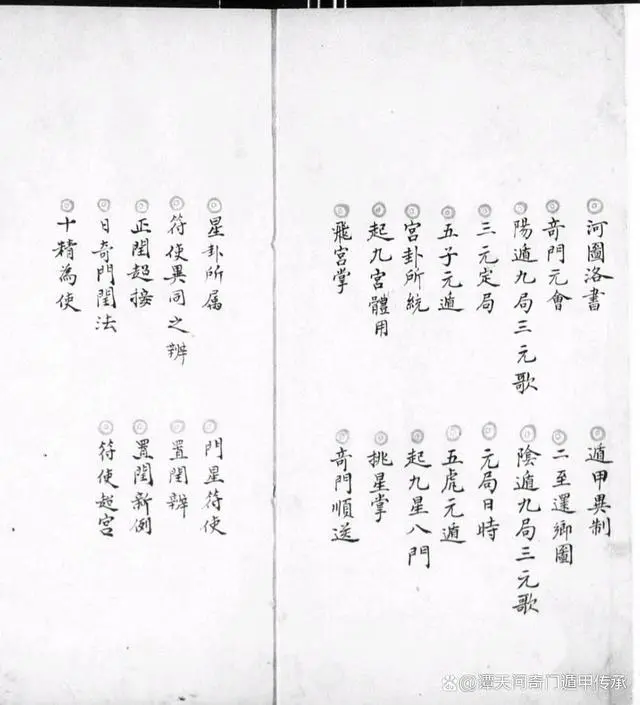 河圖洛書
遁甲異制
竒門元會
二至還鄉圖
陽遁九局三元歌
陰遁九局三元歌
三元定局
元局日時
五子元遁
五虎元遁
宮卦所統
起九星八門
起九宮體用
挑星掌
飛宮掌
竒門順逆
星卦所属
門星符使
符使異同之辨
置閏辨
正閏超接
置閏新例
日竒門閏法
符使超宮
十精為使
@谭天河奇门遁甲传承